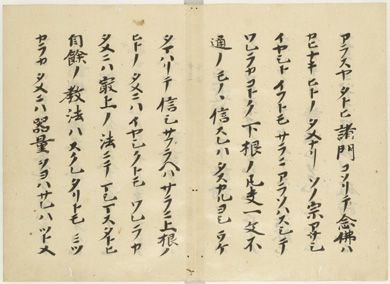 アラスヤタトヒ諸門コソリテ念佛ハ
カヒナキヒトノタメナリソノ宗アサシ
イヤシトイフトモサラニアラソハスシテ
ワレラカコトク下根ノ凡夫一文不
通ノモノヽ信スレハタスカルヨシウケ
タマハリテ信シサフラヘハサラニ上根ノ
ヒトノタメニハイヤシクトモワレラカ
タメニハ最上ノ法ニテマシマスタトヒ
自餘ノ教法ハスクレタリトモミツ
カラカタメニハ器量ヲヨハサレハツトメ